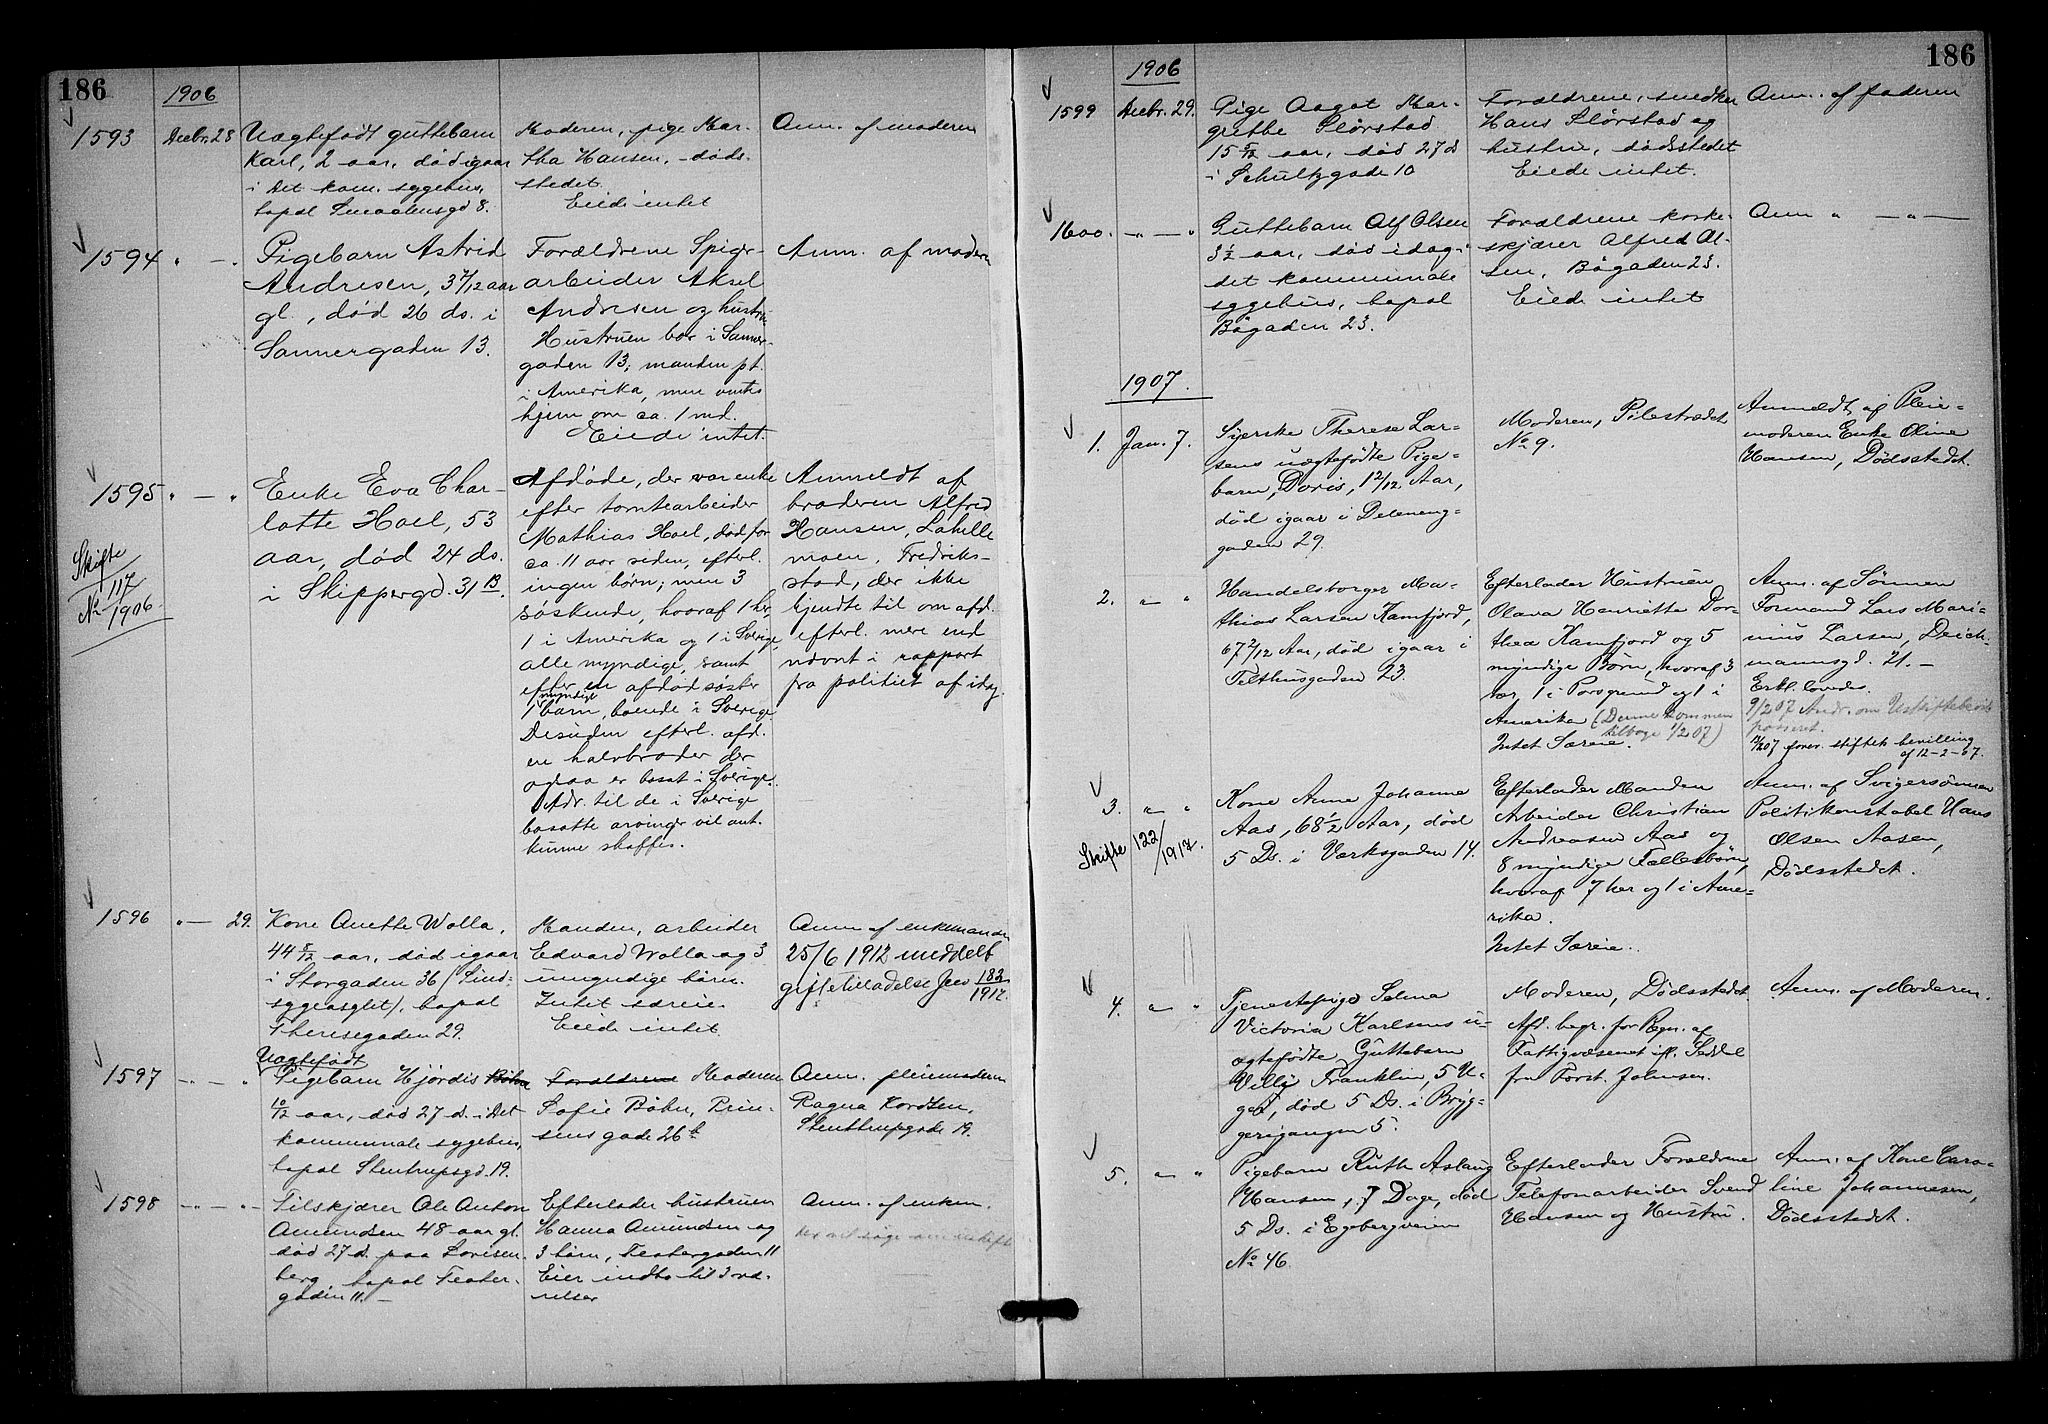 186
1906
1593
Decbr. 28
Uægtefødt guttebarn
Karl, 2 aar, død igaar
i Det kom. sygehus,
bopal Smaalensgd 8.
Moderen, pige Mar-
tha Hansen, døds-
stedet
Eiede intet
Anm. af moderen
1594 " — "
Pigebarn Astrid
Andresen, 3 7/12 aar
gl., død 26 ds. i
Sannergaden 13.
Forældrene Spiger-
arbeider Aksel
Andresen og hustru
Hustruen bor i Sanner-
gaden 13, manden pt.
i Amerika, men ventes
hjem om ca. 1 md.
Eiede intet.
Anm. af moderen
1595 " — "
Skifte
117
No 1906.
Enke Eva Char-
lotte Hoel, 53
aar, død 24 ds.
i Skippergd. 31 B.
Afdøde, der var enke
efter tomtearbeider
Mathias Hoel, død for
ca. 11 aar siden, efterl.
ingen børn; men 3
søskende, hvoraf 1 her,
1 i Amerika og 1 i Sverige,
alle myndige, samt
efter en afdød søster
1 myndigt barn, boende i Sverige
Desuden efterl. afd.
en halvbroder der
ogsaa er bosat i Sverige.
Adr. til de i Sverige
bosatte arvinger vil ant.
kunne skaffes.
Anmeldt af
broderen Alfred
Hansen, Lahelle
moen, Fredrik-
stad, der ikke
kjendte til om afd.
efterl. mere end
nævnt i rapport
fra politiet af idag.
1596 " — 29.
Kone Anette Wolla,
44 5/12 aar, død igaar
i Storgaden 36 (Sind-
sygeasylet), bopal
Theresegaden 29.
Manden, arbeider
Edvard Wolla og 3
umyndige børn.
Intet særeie.
Eiede intet
Anm af enkemanden
25/6 1912 meddelt
giftetilladelse Jno 183/1912.
1597 " — "
Uægtefødt
Pigebarn Hjørdis Bøhn
10/12 aar, død 27 d. i Det
kommunale sygehus,
bopal Stentrupsgd. 19.
Forældrene Moderen
Sofie Bøhn, Prin-
sens gade 26 b
Anm. pleiemoderen
Ragna Kordtsen,
Stenstrupgade 19.
1598 " — " —
Filskjærer Ole Anton
Amundsen 48 aar gl.
død 27 d. paa Lovisen-
berg, bopal Teater-
gaden 11. —
Efterlader hustruen
Hanna Amundsen og
3 børn, Teatergaden 11
Eier indbo til 3 væ-
relser
Anm. af enken.
der vil søge om uskifte
186
1906
1599
Decbr. 29.
Pige Aagot Mar-
grethe Slørstad
15 5/12 aar, død 27 d
i Schultzgade 10
Forældrene, snedker
Hans Slørstad og
hustru, dødsstedet
Eiede intet.
Anm. af faderen
1600. " — "
Guttebarn Alf Olsen
3 1/2 aar, død idag i
det kommunale
sygehus, bopal
Bøgaden 23.
Forældrene korke-
skjærer Alfred Ol-
sen, Bøgaden 23.
Eiede intet
Anm " — " —
1907.
1. Jan. 7.
Syerske Therese Lar-
sens uægtefødte Pige-
barn, Doris, 1 2/12 Aar,
død igaar i Deleneng-
gaden 29.
Moderen, Pilestrædet
No 9.
Anmeldt af Pleie-
moderen Enke Oline
Hansen, Dødsstedet.
2. " — "
Handelsborger Ma-
thias Larsen Kamfjord,
67 2/12 Aar, død igaar i
Telthusgaden 23.
Efterlader Hustruen
Olava Henriette Dor-
thea Kamfjord og 5
myndige Børn, hvoraf 3
her, 1 i Porsgrund og 1 i
Amerika (Denne kommen
tilbage 1/2 07)
Intet Særeie.
Anm. af Sønnen
Formand Lars Mari-
nius Larsen, Deich-
mannsgd. 21. —
Erkl. lovedes.
9/2 07 Andr. om Uskiftebevilling
passeret.
forev. stiftets bevilling
af 12-2-07.
3. " "
Skifte 122/1917.
Kone Anne Johanne
Aas, 68 1/2 Aar, død
5 Ds. i Værksgaden 14.
Efterlader Manden
Arbeider Christian
Andreasen Aas og
8 myndige Fællesbørn,
hvoraf 7 her og 1 i Ame-
rika.
Intet Særeie.
Anm. af Svigersønnen
Politikonstabel Hans
Olsen Aasen,
Dødsstedet.
4. " — "
Tjenestepige Selma
Victoria Karlsens u-
ægtefødte Guttebarn
Villy Franklin, 5 U-
ger, død 5 Ds. i Bryg-
gerigangen 5.
Moderen, Dødsstedet
Afd. begr. for Regn. af
Fattigvæsenet ifl. Seddel
fra Forst. Johnsen.
Anm. af Moderen.
5. " — "
Pigebarn Ruth Aslaug
Hansen, 7 Dage, død
5 Ds. i Egebergveien
No 46.
Efterlader Forældrene
Telefonarbeider Svend
Hansen og Hustru.
Anm. af Kone Caro-
line Johannesen,
Dødsstedet.